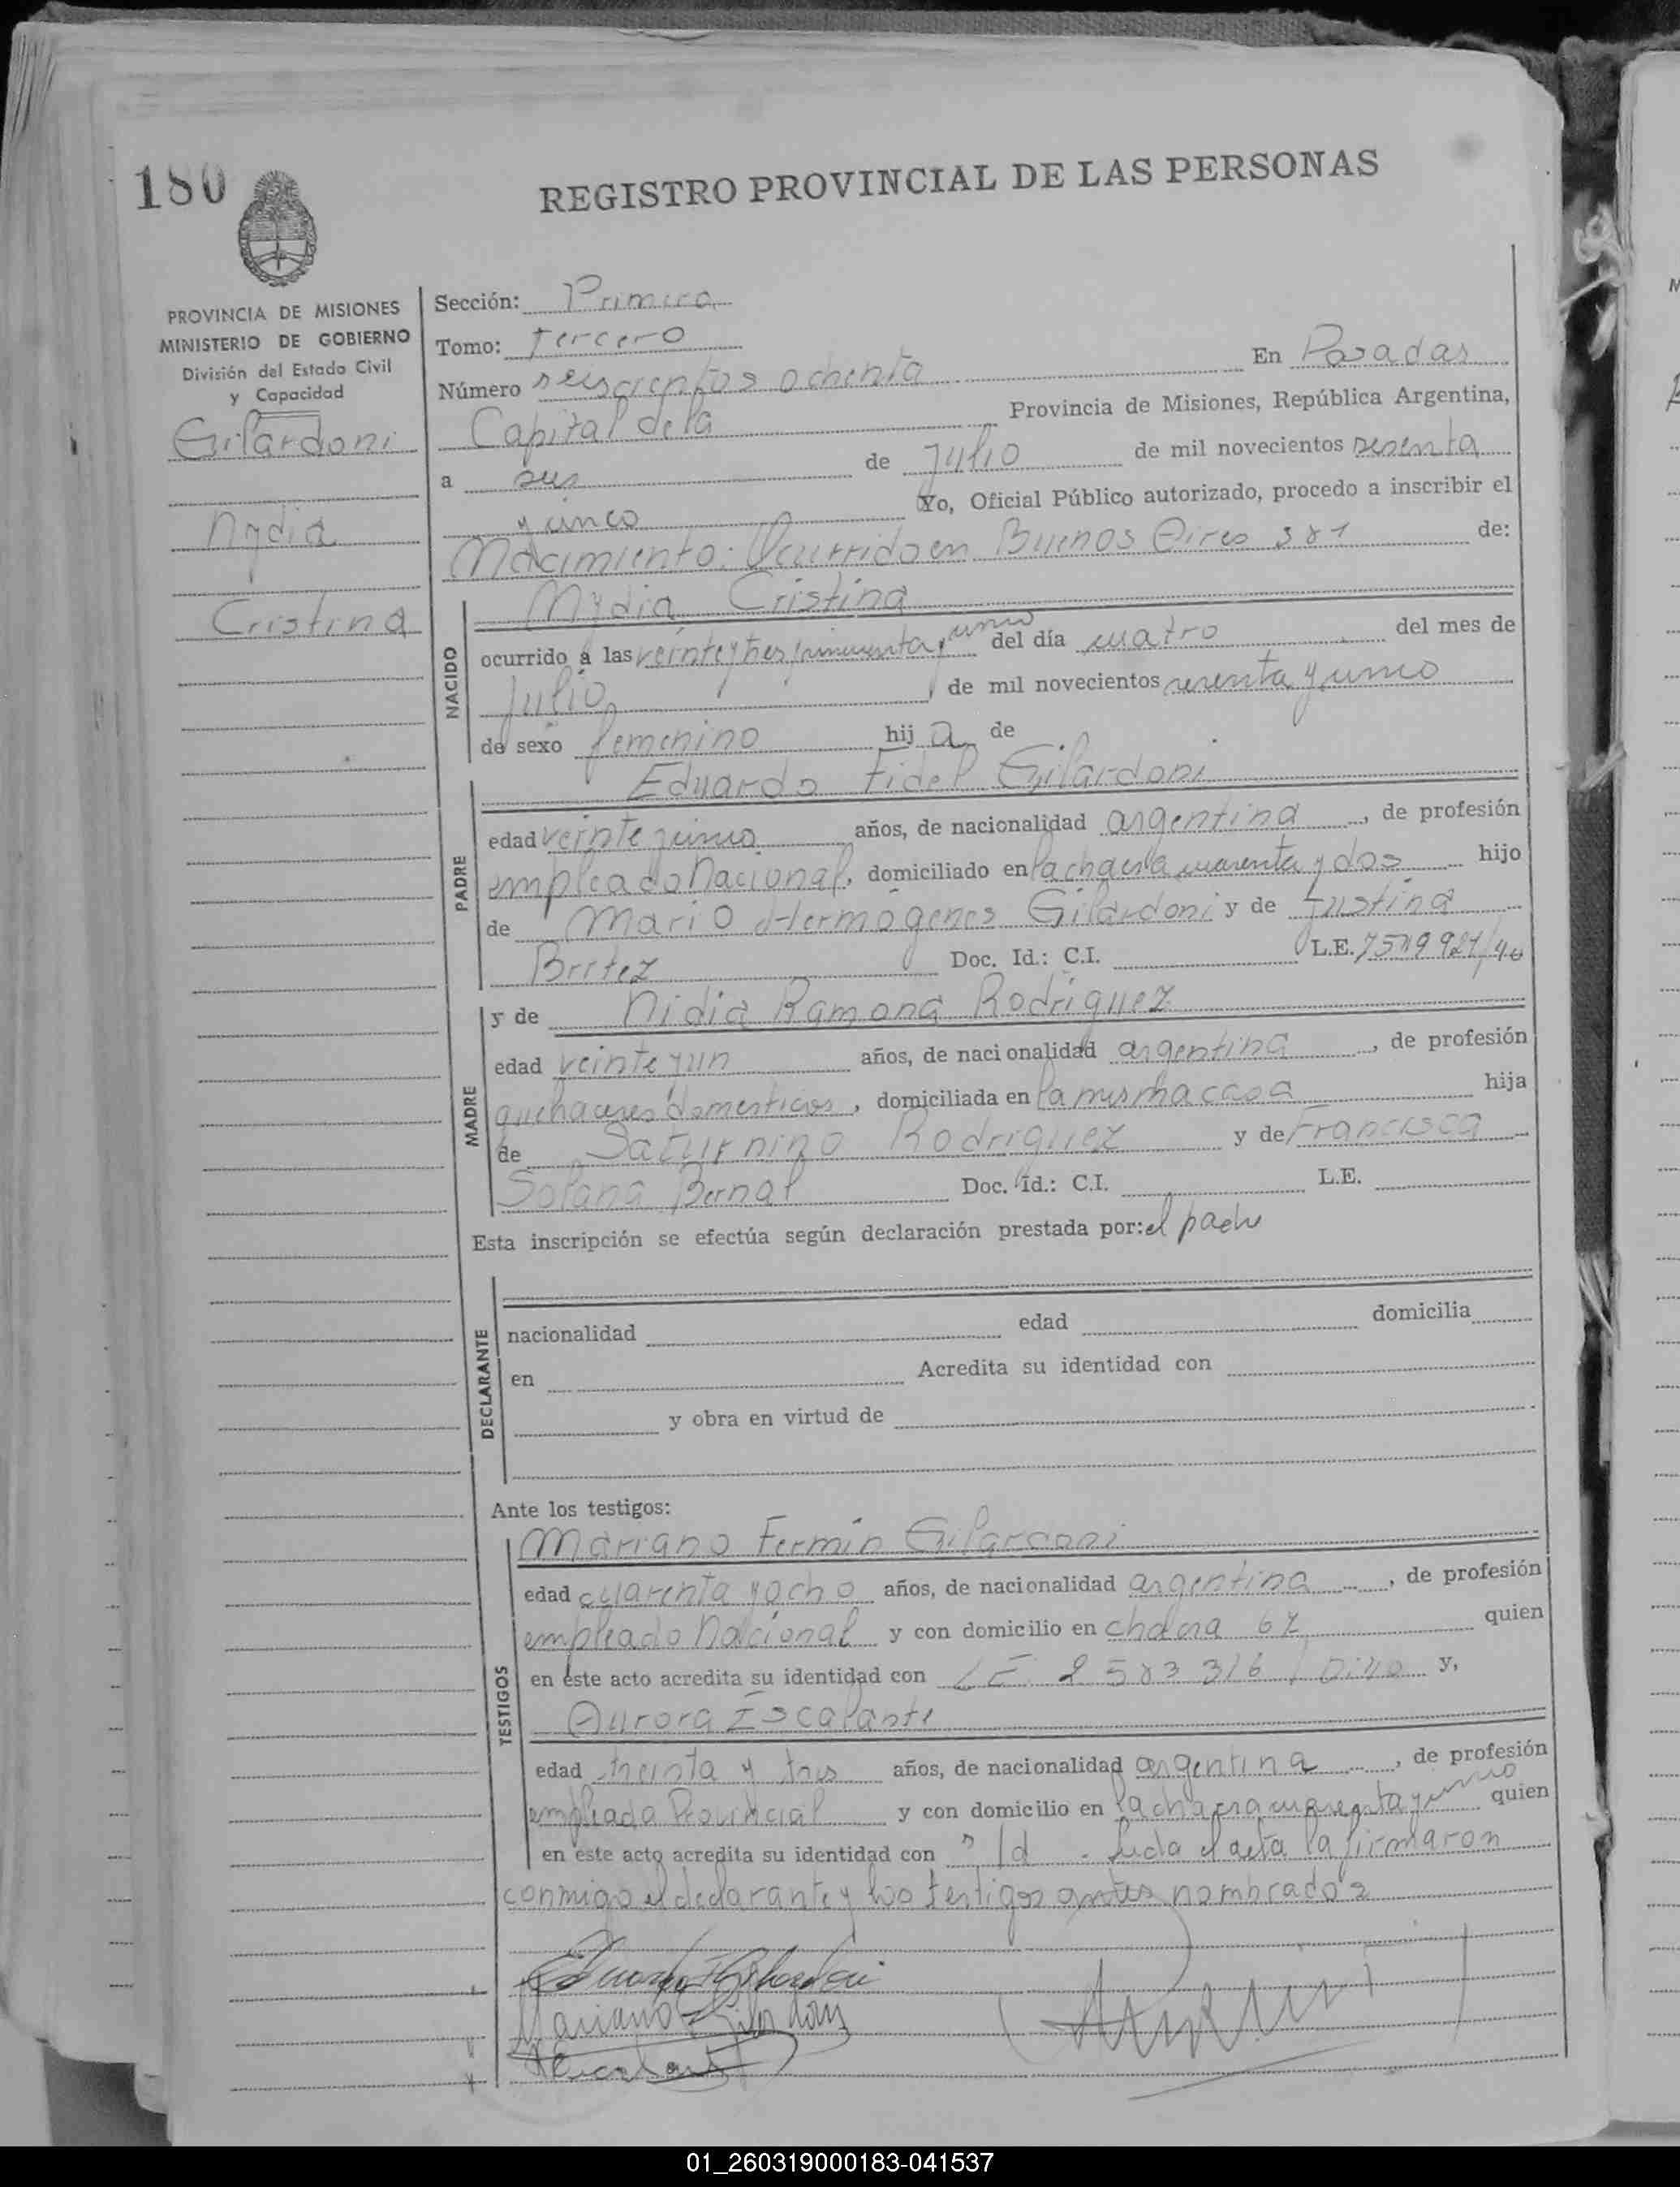 180
REGISTRO PROVINCIAL DE LAS PERSONAS
PROVINCIA DE MISIONES
MINISTERIO DE GOBIERNO
División del Estado Civil
y Capacidad
Gilardoni
Nydia
Cristina
Sección: Primera
Tomo: Tercero
Número seiscientos ochenta En Posadas
Capital de la Provincia de Misiones, República Argentina,
a seis de Julio de mil novecientos sesenta
y cinco Yo, Oficial Público autorizado, procedo a inscribir el
Nacimiento. Ocurrido en Buenos Aires 381 de:
NACIDO
Nydia Cristina
ocurrido a las veinte y tres y cincuenta y cinco del día cuatro del mes de
Julio, de mil novecientos sesenta y cinco
de sexo femenino hija de
PADRE
Eduardo Fidel Gilardoni
edad veinte y cinco años, de nacionalidad argentina, de profesión
empleado Nacional, domiciliado en la chacra cuarenta y dos hijo
de Mario Hermógenes Gilardoni y de Justina
Britez Doc. Id.: C.I. L.E.
MADRE
y de Nidia Ramona Rodriguez
edad veinte y un años, de nacionalidad argentina, de profesión
quehaceres domesticos, domiciliada en la misma casa hija
de Saturnino Rodriguez y de Francisca
Solana Bernal Doc. Id.: C.I. L.E.
Esta inscripción se efectúa según declaración prestada por: el padre
DECLARANTE
nacionalidad edad domicilia
en Acredita su identidad con
y obra en virtud de
Ante los testigos:
TESTIGOS
Mariano Fermín Gilardoni
edad cuarenta y ocho años, de nacionalidad argentina, de profesión
empleado Nacional y con domicilio en chacra quien
en este acto acredita su identidad con LE 2583316 y,
Aurora Escalante
edad treinta y tres años, de nacionalidad argentina, de profesión
empleada Provincial y con domicilio en la chacra cuarenta y cinco quien
en este acto acredita su identidad con " Id. Leida el acta la firmaron
conmigo el declarante y los testigos antes nombrados
Mariano Gilardoni
01_260319000183-041537